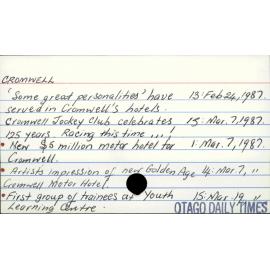 CROMWELL
'Some great personalities' have 13: Feb 24, 1987.
served in Cromwell's hotels.
Cromwell Jockey Club celebrates 15: Mar. 7, 1987.
125 years Racing this time ...!
• New $5 million motor hotel for 1: Mar. 7, 1987.
Cromwell.
• Artists impression of new Golden Age 14: Mar. 7, "
Cromwell Motor Hotel.
• First group of trainees at Youth 15: Mar 19 "
Learning Centre.
OTAGO DAILY TIMES